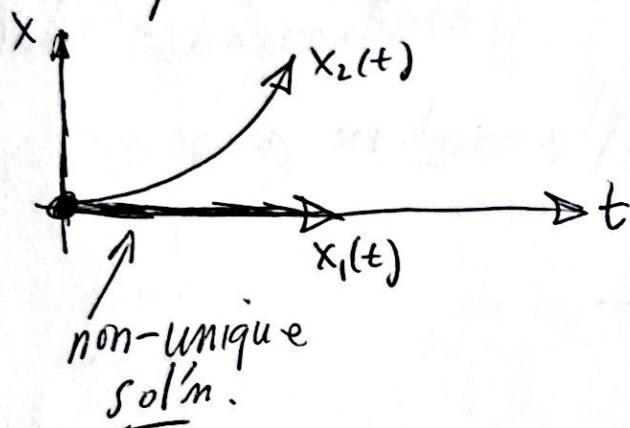 x
x₂(t)
t
x₁(t)
non-unique
sol'n.